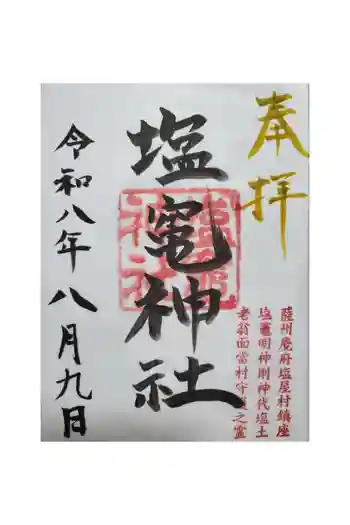 奉拝
薩州麑府塩屋村鎮座
塩竈明神則神代塩土
老翁而當村守護之霊
塩竈神社
令和八年八月九日